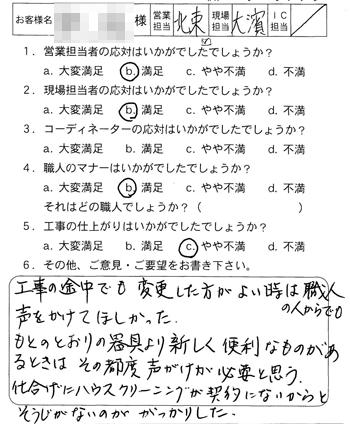 お客様名 様 営業担当 北東 現場担当 大濱 IC担当
1．営業担当者の応対はいかがでしたでしょうか？
a. 大変満足 b. 満足 c. やや不満 d. 不満
2．現場担当者の応対はいかがでしたでしょうか？
a. 大変満足 b. 満足 c. やや不満 d. 不満
3．コーディネーターの応対はいかがでしたでしょうか？
a. 大変満足 b. 満足 c. やや不満 d. 不満
4．職人のマナーはいかがでしたでしょうか？
a. 大変満足 b. 満足 c. やや不満 d. 不満
それはどの職人でしょうか？（ ）
5．工事の仕上がりはいかがでしたでしょうか？
a. 大変満足 b. 満足 c. やや不満 d. 不満
6．その他、ご意見・ご要望をお書き下さい。
工事の途中でも変更した方がよい時は職人
の人からでも
声をかけてほしかった.
もとのとおりの器具より新しく便利なものがあ
るときは その都度 声がけが必要と思う.
仕上げにハウスクリーニングが契約にないからと
そうじがないのが がっかりした.